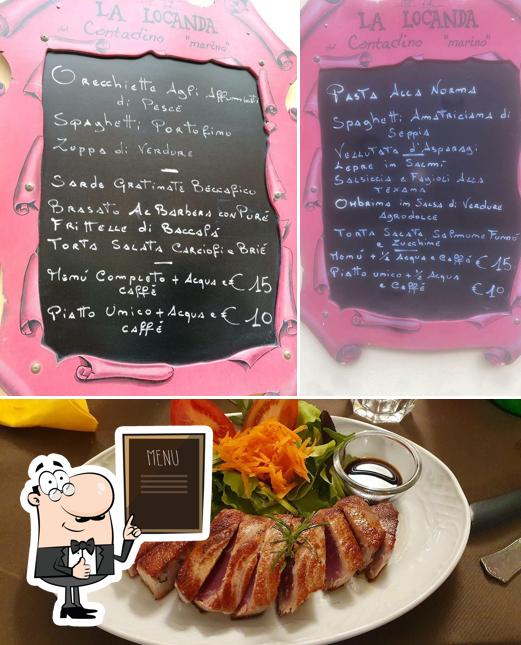 LA LOCANDA
del Contadino "marino"
Orecchiette Agli Affumicati
di Pesce
Spaghetti Portofino
Zuppa di Verdure
Sarde Gratinate Beccafico
Brasato Al Barbera con Purè
Frittelle di Baccalà
Torta Salata Carciofi e Brie
Menù Completo + Acqua e € 15
caffè
Piatto Unico + Acqua e € 10
caffè
LA LOCANDA
del Contadino "marino"
Pasta Alla Norma
Spaghetti Amatriciana di
Seppia
Vellutata d'Asparagi
Lepre in Salmì
Salsiccia e Fagioli Alla
Texana
Ombrina in Salsa di Verdure
Agrodolce
Torta Salata Salmone Fumo
e Zucchine
Menù + ½ Acqua e Caffè € 15
Piatto unico + ½ Acqua
e Caffè € 10
MENU